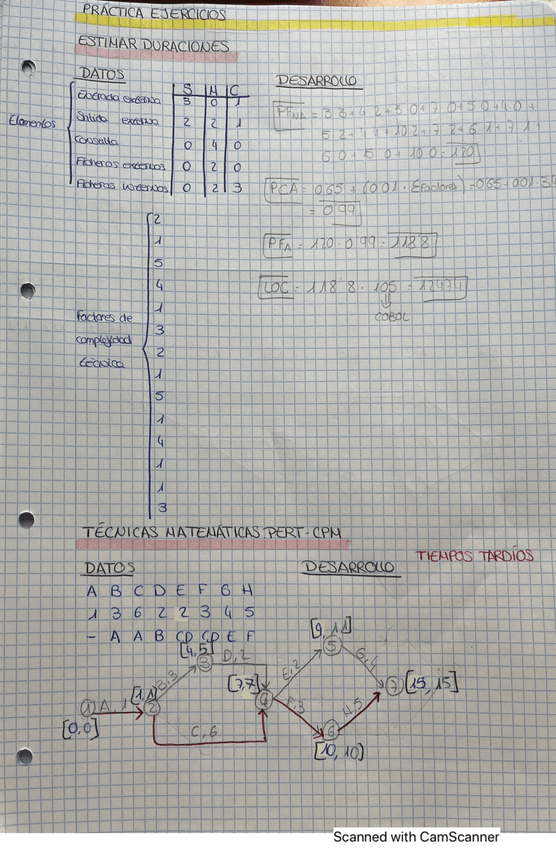 PRÁCTICA EJERCICIOS
ESTIMAR DURACIONES
DATOS
S M C
Elementos
Entrada externa 3 0 1
Salida externa 2 2 1
Consulta 0 4 0
Ficheros externos 0 2 0
Ficheros internos 0 2 3
Factores de complejidad técnica
2
1
5
4
1
3
2
1
5
1
4
1
1
3
DESARROLLO
PFNA = 3·3+4·2+3·0+7·0+5·0+4·0+
5·2+4·4+10·2+7·2+6·1+7·1+
6·0+15·0+10·0 = 120
PCA = 0'65 + (0'01 · Σfactores) = 0'65+0'01·34
= 0'99
PFA = 120 · 0'99 = 118'8
LOC = 118'8 · 105 = 12474
COBOL
TÉCNICAS MATEMÁTICAS PERT-CPM
TIEMPOS TARDÍOS
DATOS
A B C D E F G H
1 3 6 2 2 3 4 5
- A A B CD CD E F
DESARROLLO
1 [0,0]
A, 1
2 [1,1]
B, 3
3 [4,5]
D, 2
C, 6
4 [7,7]
E, 2
5 [9,11]
G, 4
F, 3
6 [10,10]
H, 5
7 [15,15]
Scanned with CamScanner